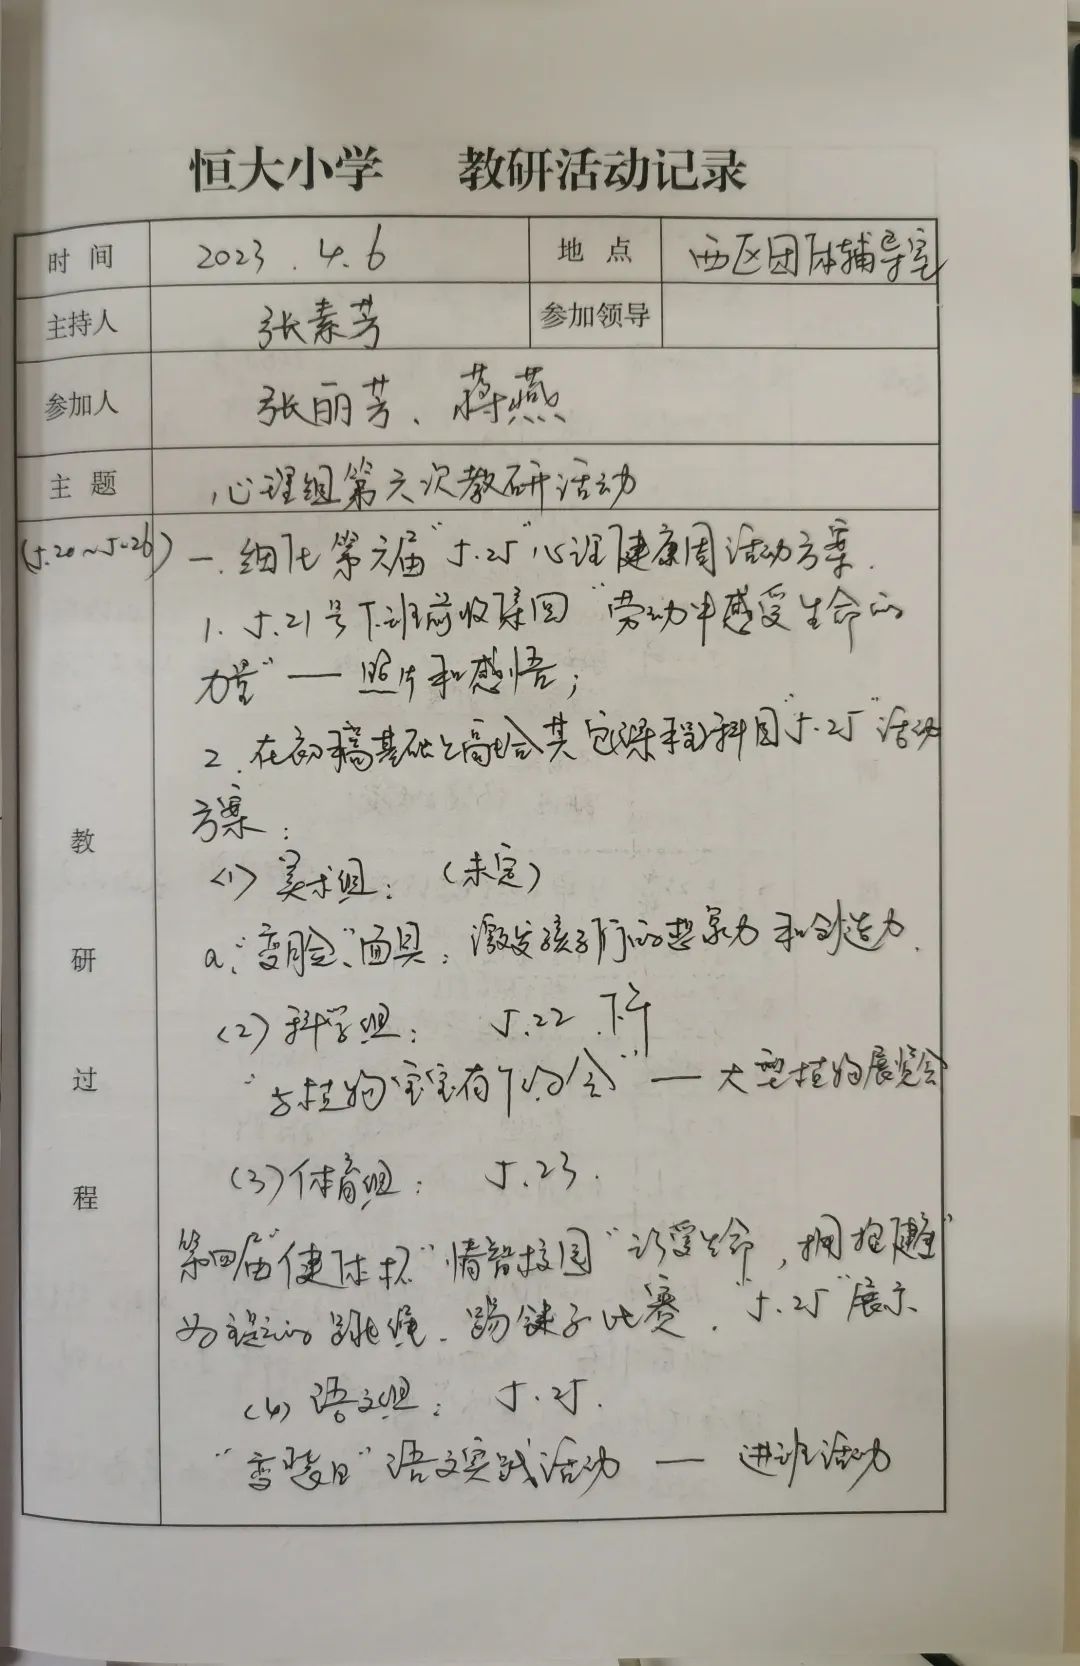 恒大小学 教研活动记录
时间 2023.4.6 地点 西区团体辅导室
主持人 张素芳 参加领导
参加人 张丽芳、蒋燕
主题 心理组第六次教研活动
(5.20~5.26) 一.细化第六届"5.25"心理健康周活动方案.
1. 5.21号下班前收集回"劳动中感受生命的
力量"——照片和感悟;
2.在初稿基础上融合其它课程科目"5.25"活动
方案:
教研过程
(1)美术组: (未定)
a、"变脸"面具:激发孩子们的想象力和创造力.
(2)科学组: 5.22 下午
"与植物宝宝有个约会"—大型植物展览会
(3)体育组: 5.23.
第四届"健体杯"情智校园"享受生命,拥抱健康"
为主题的跳绳、踢毽子比赛."5.25"展示
(4)语文组: 5.25.
"变装日"语文实践活动 — 进班活动